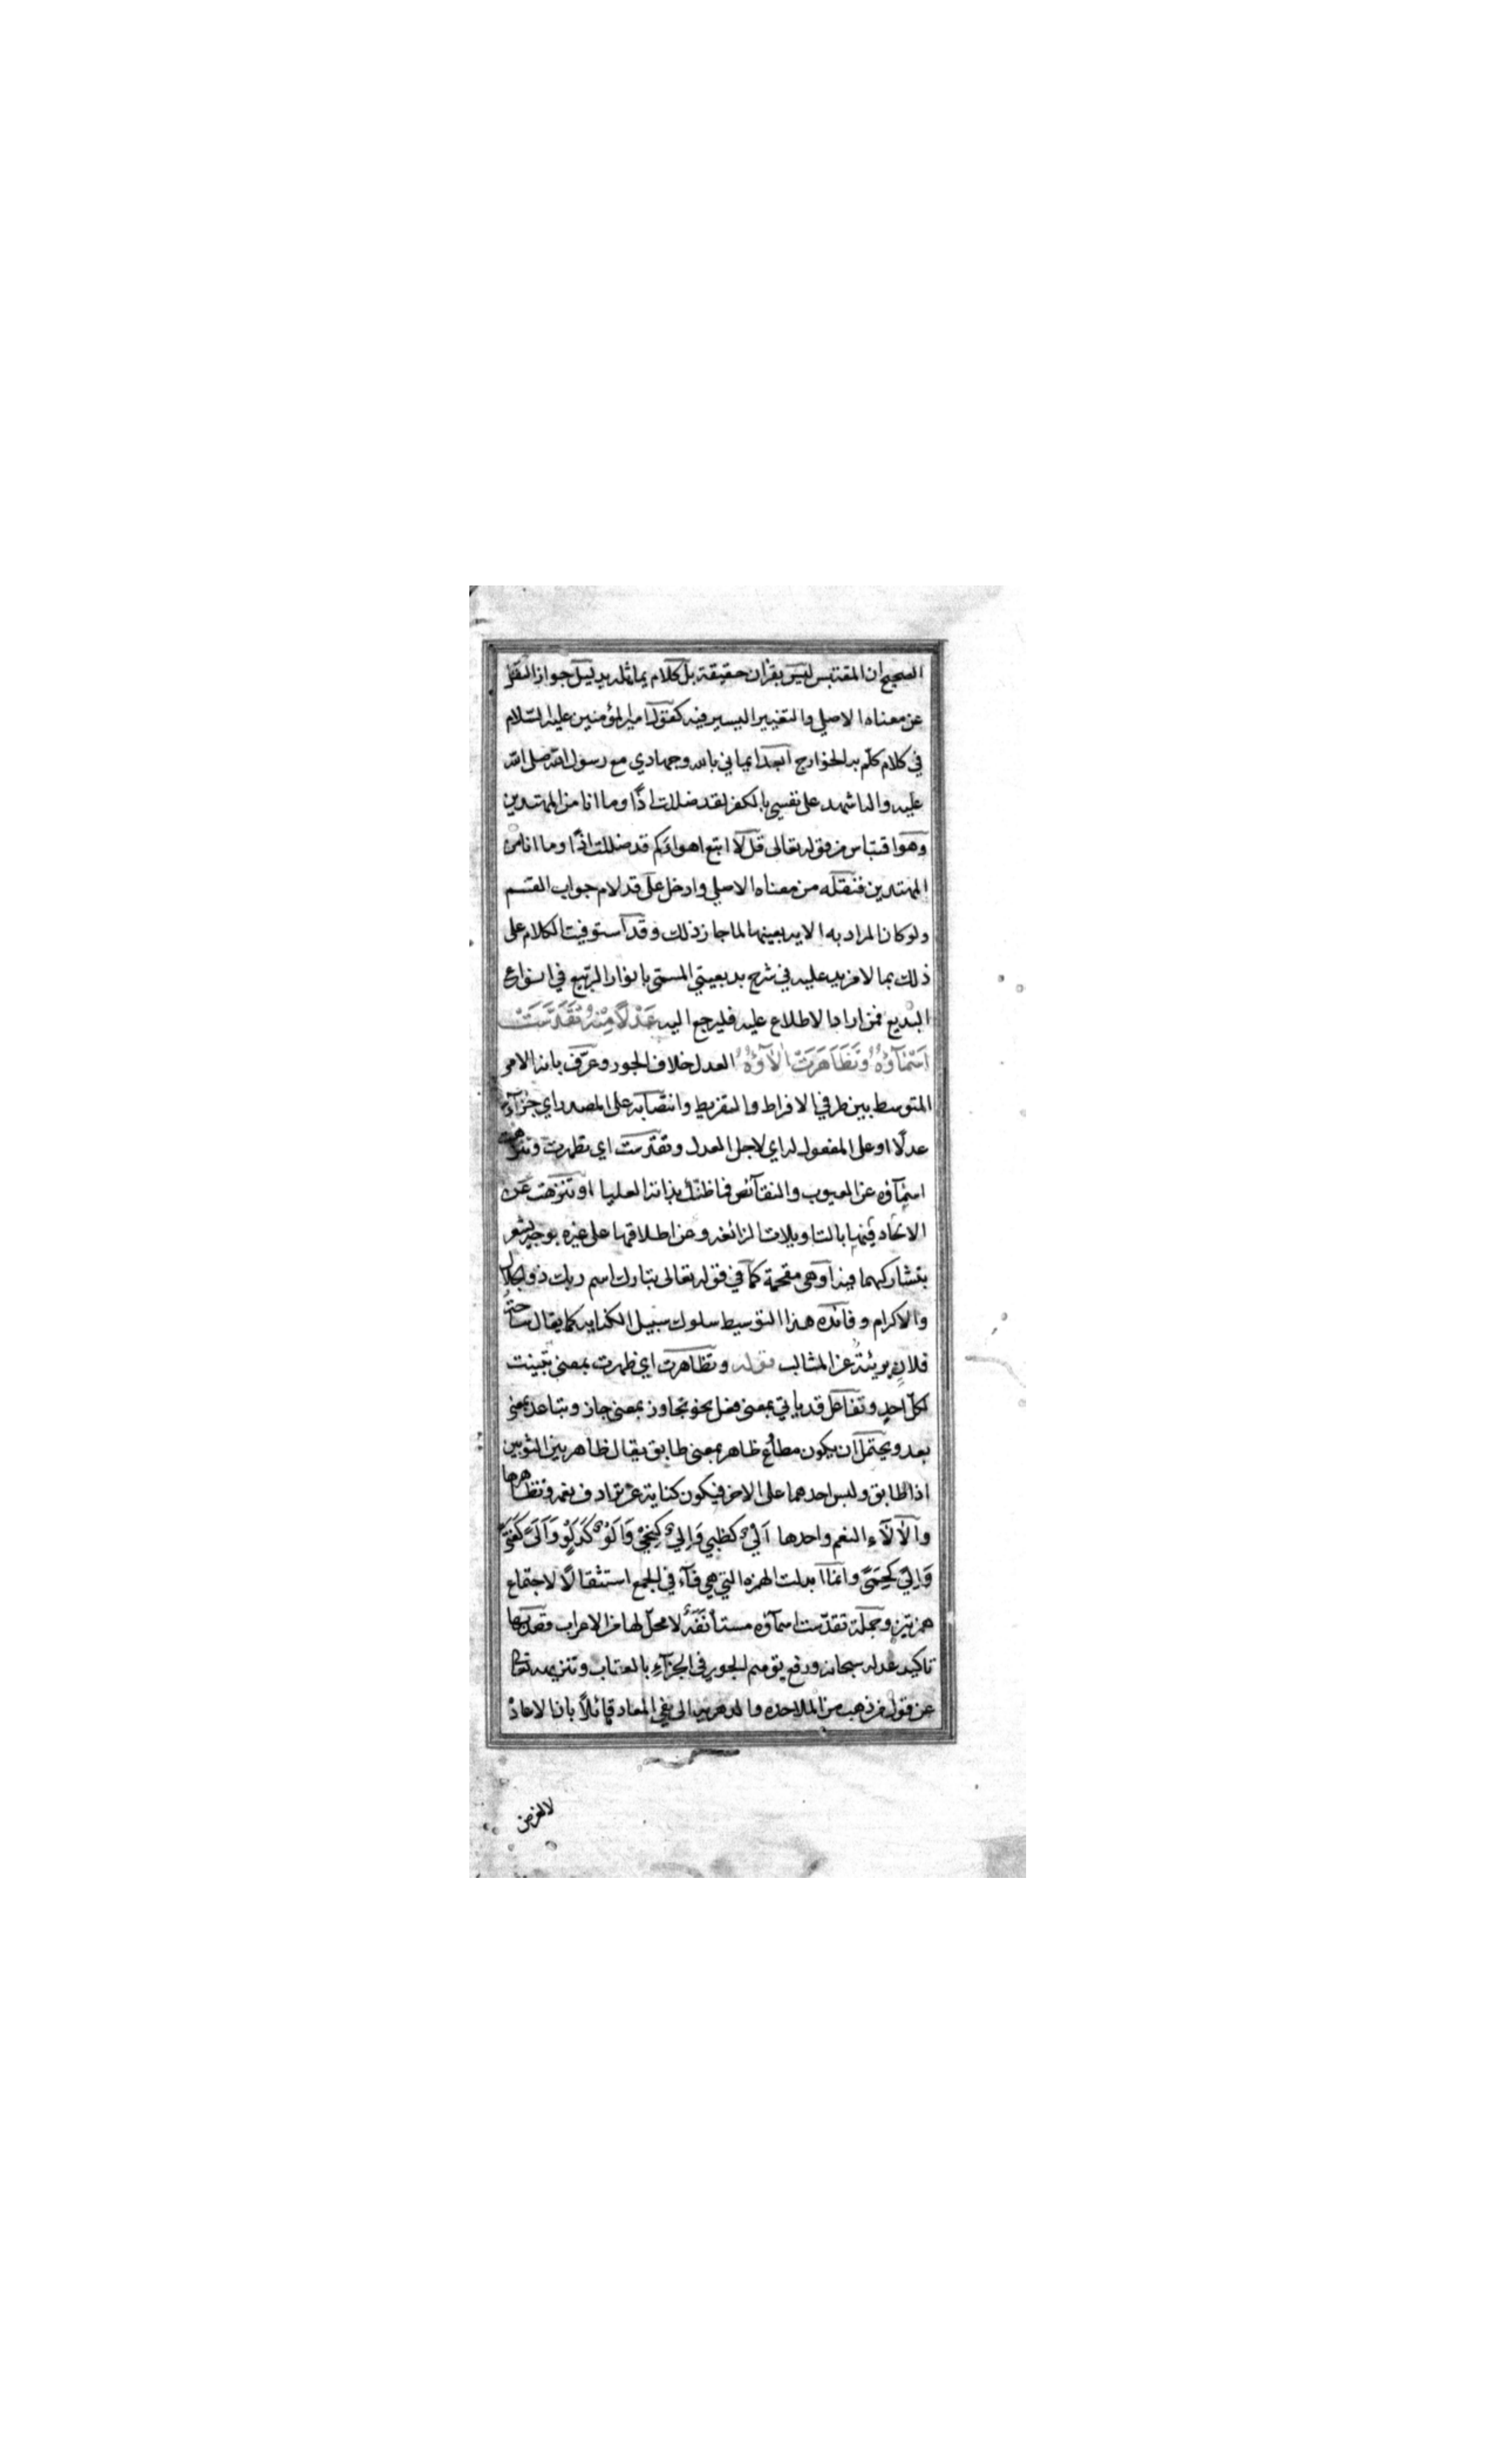 الصحيح ان المقتبس ليس بقران حقيقة بل كلام يماثله بدليل جواز النقل
عن معناه الاصلي والتغيير اليسير فيه كقول امير المؤمنين عليه السّلام
في كلام كلّم به الخوارج ابعد ايماني بالله وجهادي مع رسول الله صلى الله
عليه واله اشهد على نفسي بالكفر لقد ضللت اذًا وما انا من المهتدين
وهو اقتباس من قوله تعالى قل لا اتبع اهوائكم قد ضللت اذًا وما انا من
المهتدين فنقله من معناه الاصلي وادخل على قد لام جواب القسم
ولو كان المراد به الاية بعينها لما جاز ذلك وقد استوفيت الكلام على
ذلك بما لا مزيد عليه في شرح بديعيتي المسمّى بانوار الربيع في انواع
البديع فمن اراد الاطلاع عليه فليرجع اليه عَدْلًا مِنْهُ وَتَقَدَّسَتْ
اَسْمَآؤُهُ وَتَظَاهَرَتْ الَآؤُهُ العدل خلاف الجور وعرّف بانه الامر
المتوسط بين طرفي الافراط والتفريط وانتصابه على المصدر اي جزآء
عدلًا او على المفعول له اي لاجل العدل وتقدّست اي تطهرت وتنزهت
اسمآؤه عن العيوب والنقآئص فما ظنّك بذاته العليا او تنزهت عن
الالحاد فيها بالتاويلات الزائغه وعن اطلاقها على غيره بوجه يشعر
بتشاركهما فيه او هي مقحمة كما في قوله تعالى تبارك اسم ربك ذو الجلال
والاكرام وفائده هذا التوسيط سلوك سبيل الكنايه كما يقال ساحة
فلانٍ بريئةٌ عن المثالب قوله وتظاهرت اي ظهرت بمعنى تبينت
لكلّ احدٍ وتفاعل قد ياتي بمعنى فعل نحو تجاوز بمعنى جاز وتباعد بمعنى
بعد ويحتمل ان يكون مطاوع ظاهر بمعنى طابق يقال ظاهر بين الثوبين
اذا طابق ولبس احدهما على الاخر فيكون كناية عن ترادف نعمه وتظاهرها
والآلآء النعم واحدها اَلْيٌ كظبي وَاِلْيٌ كَنِحْيٍ وَاَلْوٌ كَدَلْوٍ وَاَلًى كَفَتًى
وَاِلًى كَحِمًى وانما ابدلت الهمزه التي هي فآء في الجمع استثقالًا لاجتماع
همزتين وجملة تقدّست اسمآؤه مستأنَفَةٌ لا محلّ لها من الاعراب وقصد بها
تاكيد عدله سبحانه ودفع توهم الجور في الجزآءِ بالعقاب وتنزيهه تعالى
عن قول من ذهب من الملاحده والدهريه الى نفي المعاد قائلًا بان الاعادة
لا لغرض